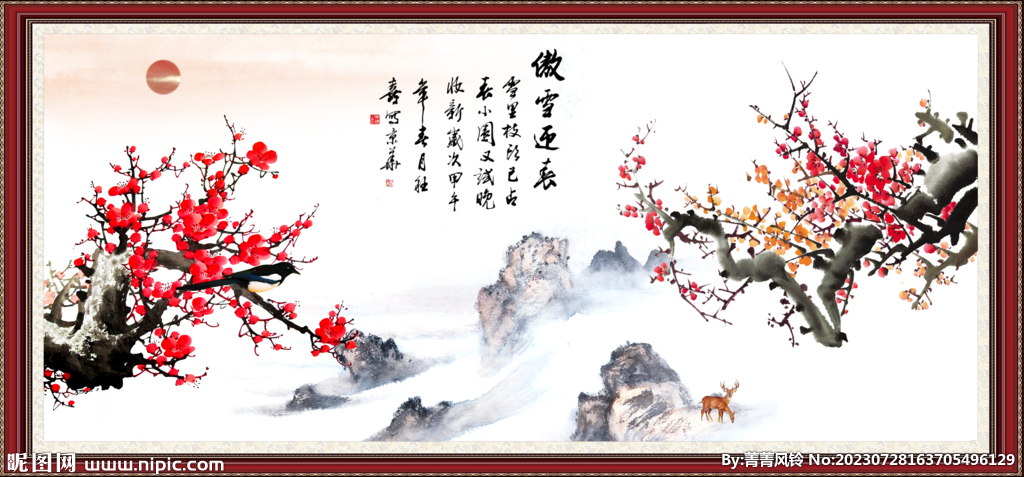 傲雪迎春
雪里枝頭已占
春小園又試晚
妝新歲次甲午
年春月程
喜寫京華
昵图网 www.nipic.com
By:菁菁风铃 No:20230728163705496129